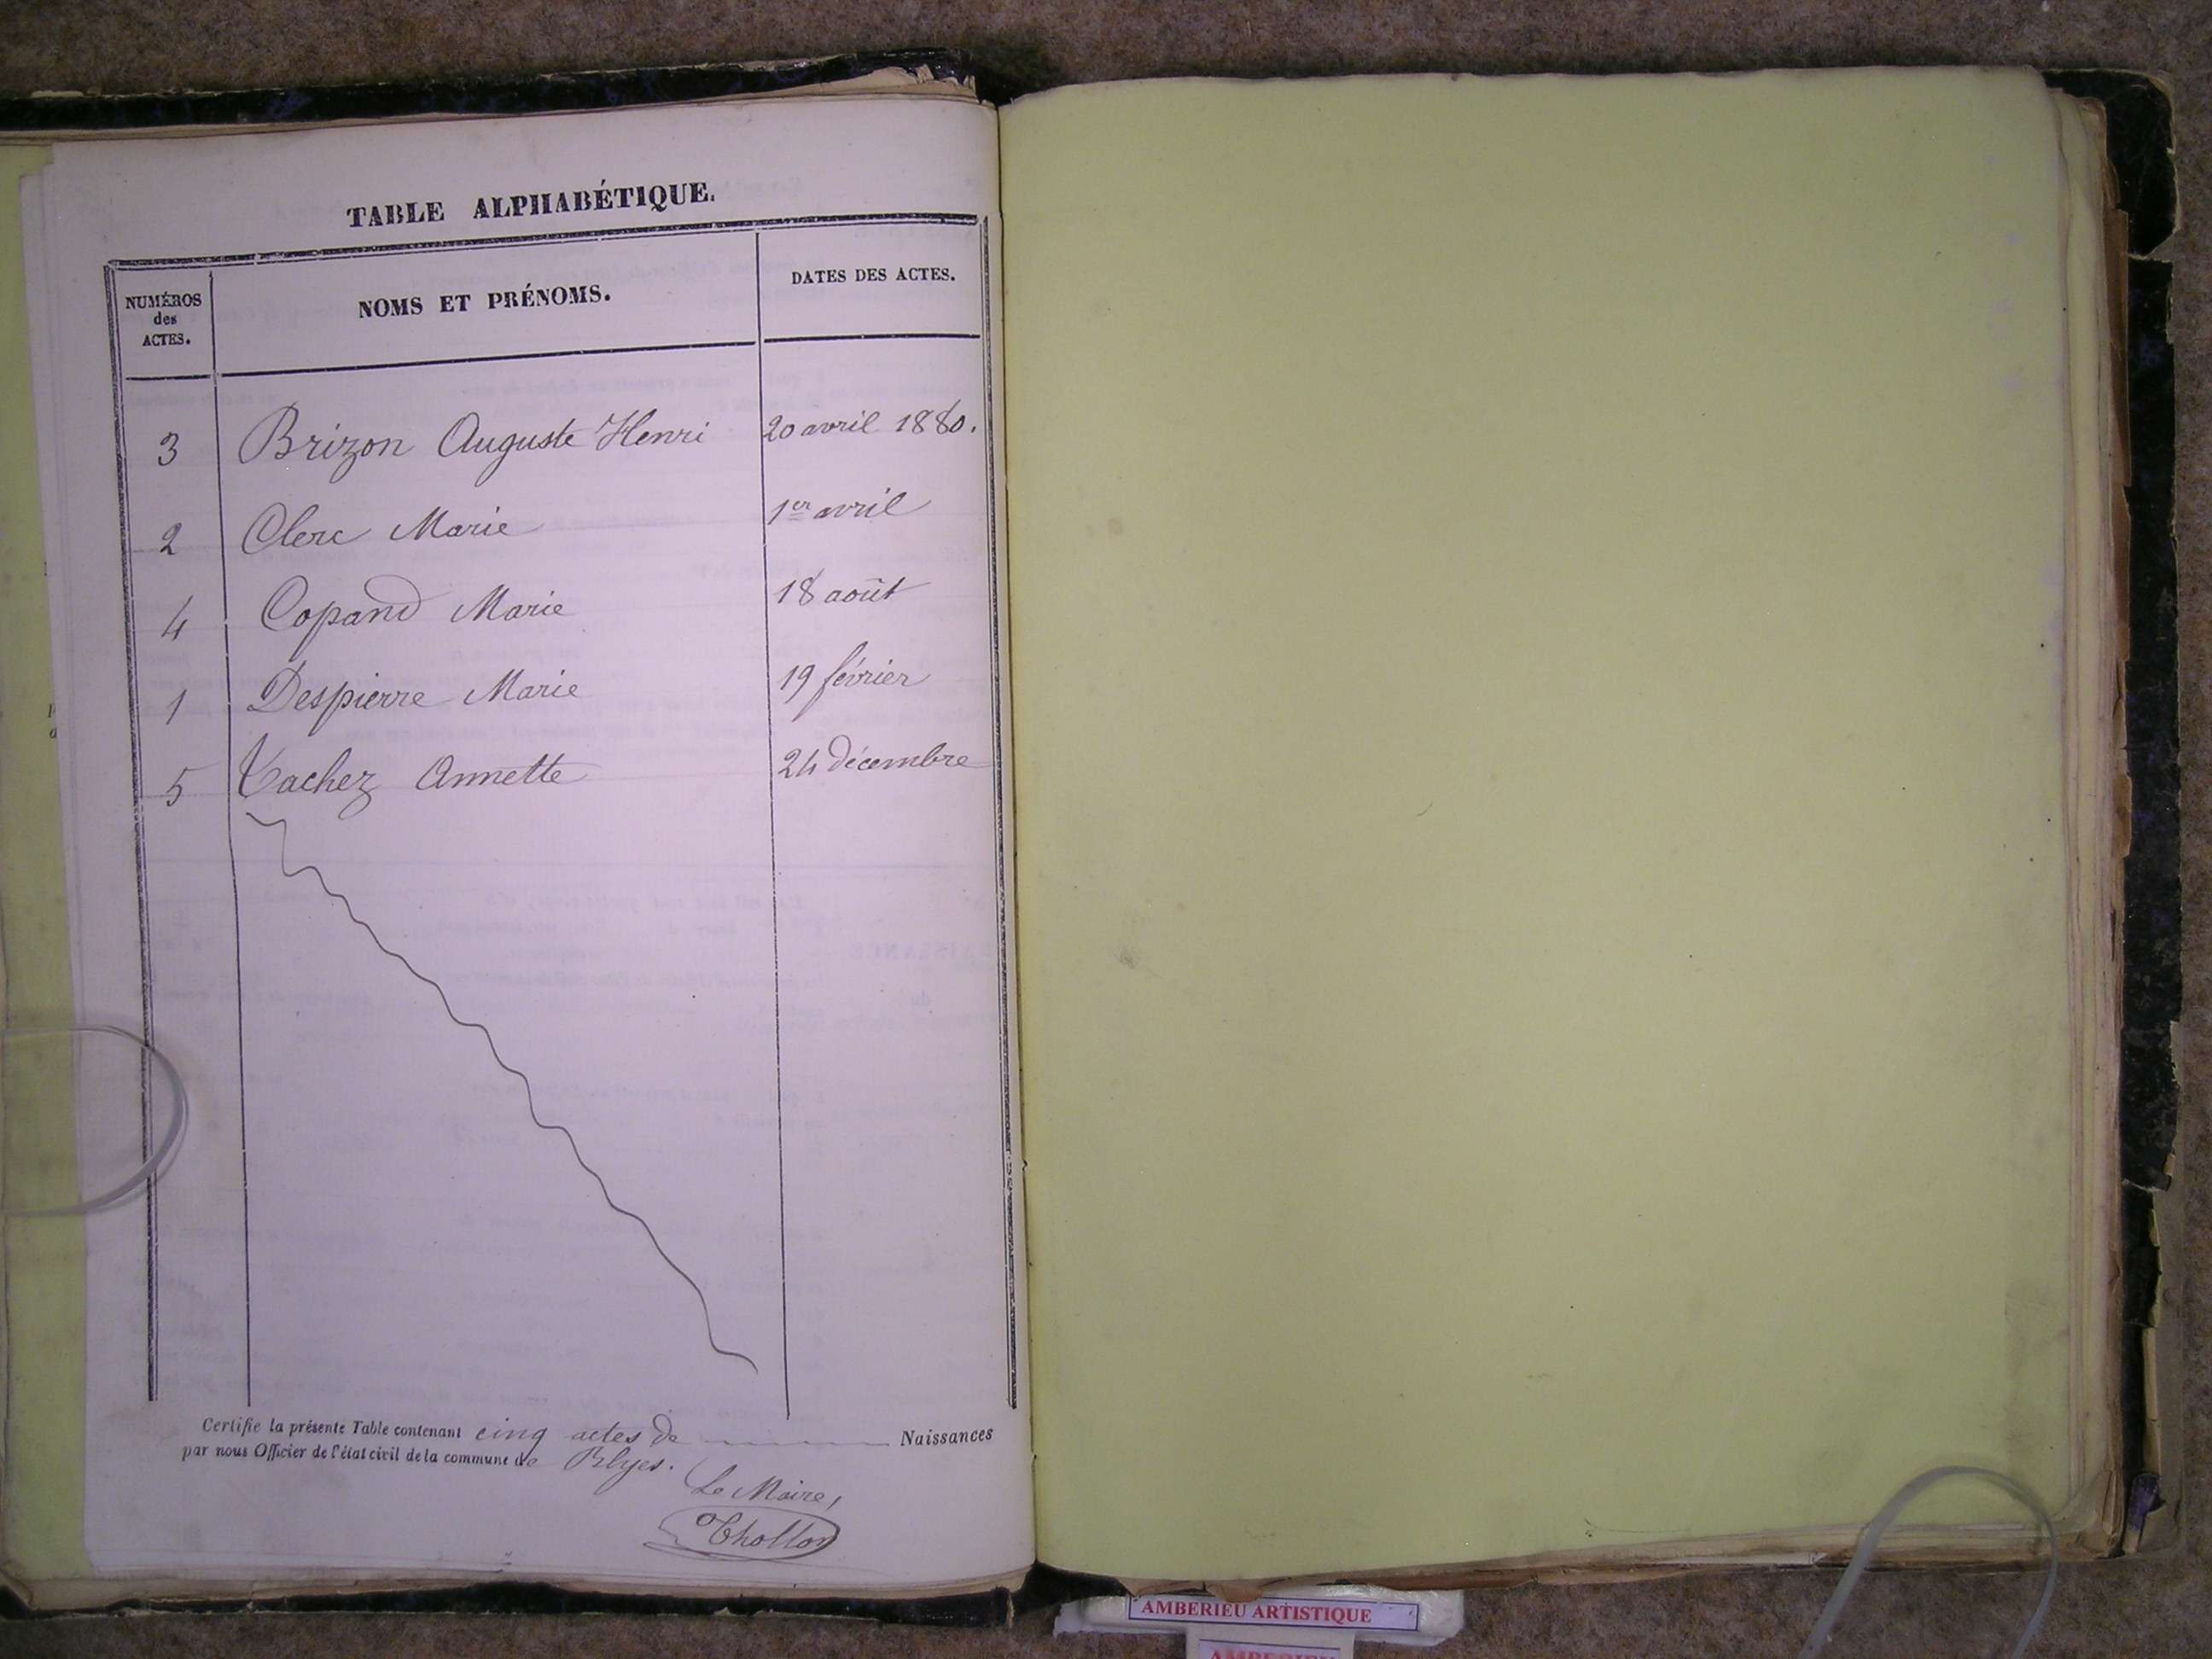 TABLE ALPHABÉTIQUE.
NUMÉROS des ACTES. NOMS ET PRÉNOMS. DATES DES ACTES.
3 Brizon Auguste Henri 20 avril 1880.
2 Clerc Marie 1er avril
4 Copand Marie 18 août
1 Despierre Marie 19 février
5 Vachez Annette 24 décembre
Certifie la présente Table contenant cinq actes de Naissances
par nous Officier de l'état civil de la commune de Blyes.
Le Maire,
Thollon
AMBERIEU ARTISTIQUE
AMBERIEU